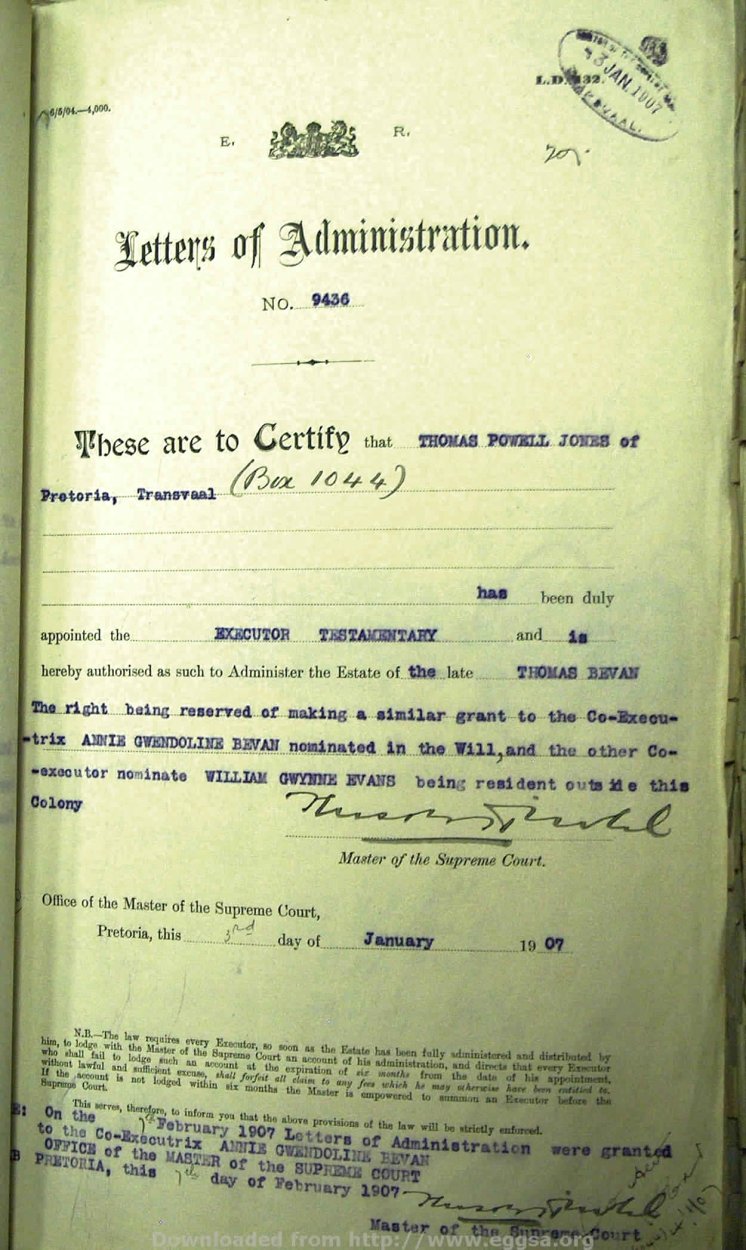 L.D. 132.
3 JAN. 1907
6/5/04.—4,000.
E. R.
Letters of Administration.
NO. 9436
These are to Certify that THOMAS POWELL JONES of
Pretoria, Transvaal (Box 1044)
has been duly
appointed the EXECUTOR TESTAMENTARY and is
hereby authorised as such to Administer the Estate of the late THOMAS BEVAN
The right being reserved of making a similar grant to the Co-Execu-
-trix ANNIE GWENDOLINE BEVAN nominated in the Will, and the other Co-
-executor nominate WILLIAM GWYNNE EVANS being resident outside this
Colony
Master of the Supreme Court.
Office of the Master of the Supreme Court,
Pretoria, this 3rd day of January 1907
N.B.—The law requires every Executor, so soon as the Estate has been fully administered and distributed by
him, to lodge with the Master of the Supreme Court an account of his administration, and directs that every Executor
who shall fail to lodge such an account at the expiration of six months from the date of his appointment,
without lawful and sufficient excuse, shall forfeit all claim to any fees which he may otherwise have been entitled to.
If the account is not lodged within six months the Master is empowered to summon an Executor before the
Supreme Court.
This serves, therefore, to inform you that the above provisions of the law will be strictly enforced.
On the 7th February 1907 Letters of Administration were granted
to the Co-Executrix ANNIE GWENDOLINE BEVAN
OFFICE of the MASTER of the SUPREME COURT
PRETORIA, this 7th day of February 1907
Master of the Supreme Court
Downloaded from http://www.eggsa.org